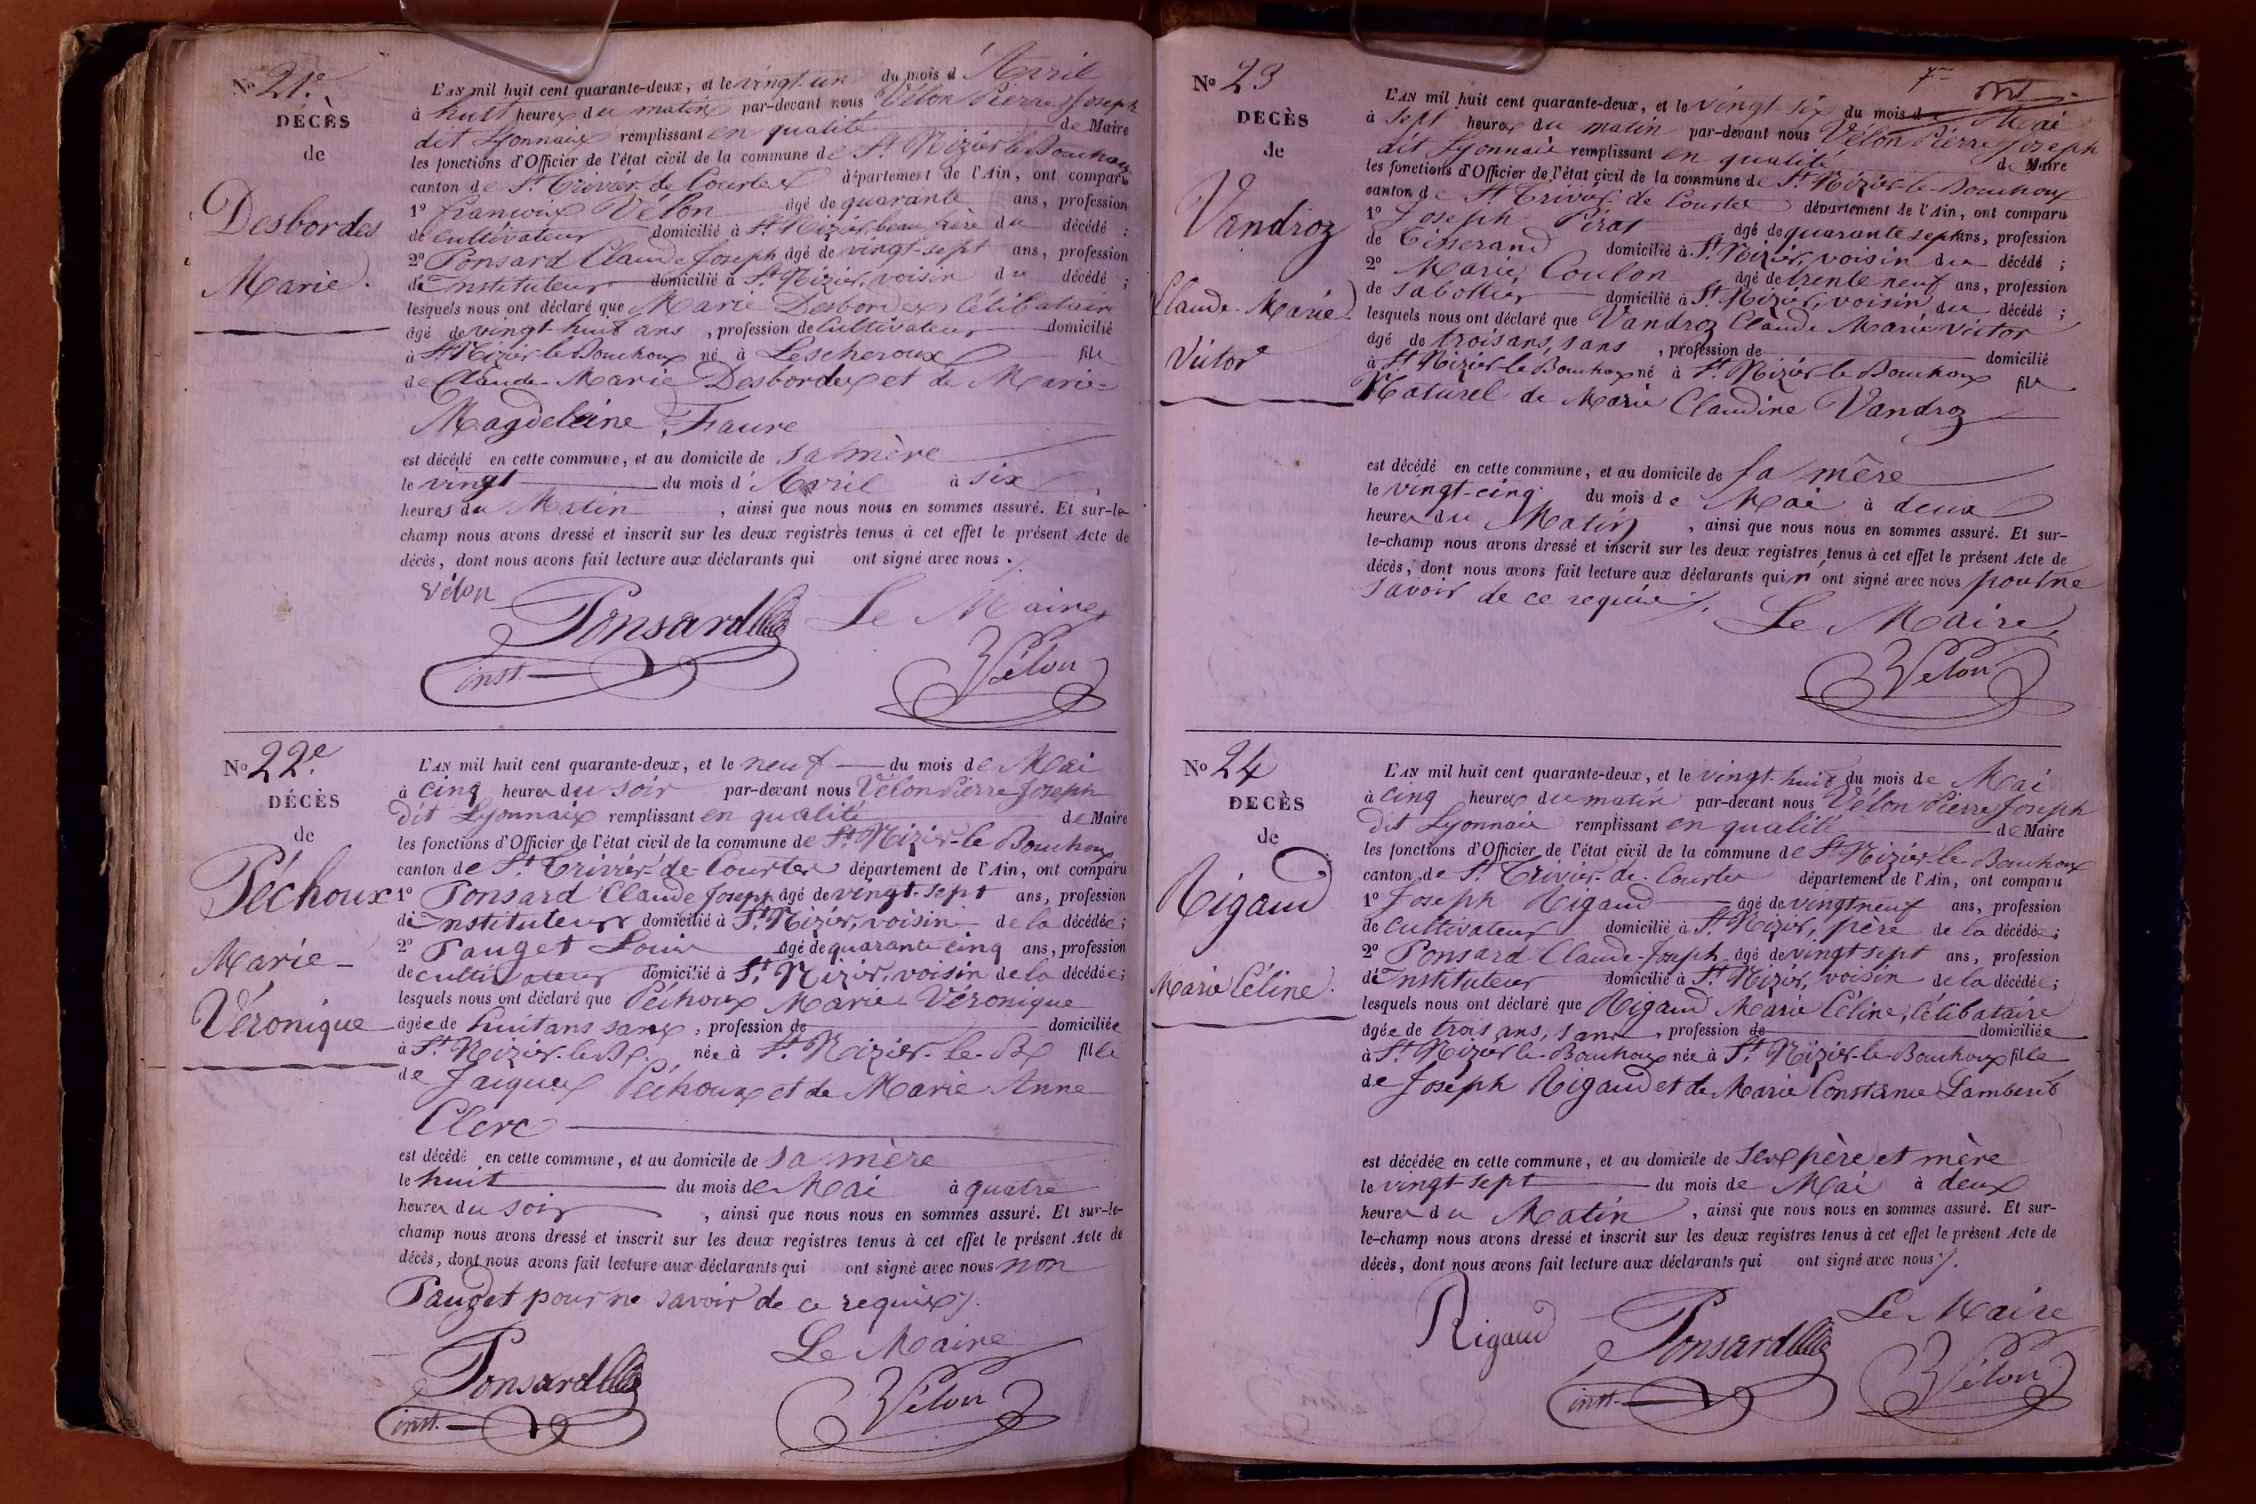 No 21e.
DÉCÈS
de
Desbordes
Marie.
L'AN mil huit cent quarante-deux, et le vingt un du mois d'Avril
à huit heures du matin par-devant nous Vélon Pierre Joseph
dit Lyonnais remplissant en qualité de Maire
les fonctions d'Officier de l'état civil de la commune de St Nizier le Bouchoux
canton de St Trivier de Courtes département de l'Ain, ont comparu
1o francois Vélon âgé de quarante ans, profession
de cultivateur domicilié à St Nizier, beau frère du décédé ;
2o Ponsard Claude Joseph âgé de vingt-sept ans, profession
de Instituteur domicilié à St Nizier, voisin du décédé ;
lesquels nous ont déclaré que Marie Desbordes, célibataire
âgé de vingt-huit ans , profession de Cultivateur domicilié
à St Nizier-le-Bouchoux né à Lescheroux fils
de Claude-Marie Desbordes et de Marie-
Magdeleine Faure
est décédé en cette commune, et au domicile de sa mère
le vingt du mois d'Avril à six
heures du Matin , ainsi que nous nous en sommes assuré. Et sur-le-
champ nous avons dressé et inscrit sur les deux registres tenus à cet effet le présent Acte de
décès, dont nous avons fait lecture aux déclarants qui ont signé avec nous.
vélon
Ponsard
Le Maire
inst.
Vélon
No 22e.
DÉCÈS
de
Péchoux
Marie-
Véronique
L'AN mil huit cent quarante-deux, et le neuf du mois de Mai
à cinq heures du soir par-devant nous Vélon Pierre Joseph
dit Lyonnais remplissant en qualité de Maire
les fonctions d'Officier de l'état civil de la commune de St Nizier-le Bouchoux
canton de St Trivier-de-Courtes département de l'Ain, ont comparu
1o Ponsard Claude Joseph âgé de vingt-sept ans, profession
de Instituteur domicilié à St Nizier, voisin de la décédée ;
2o Pauget Louis âgé de quarante cinq ans, profession
de cultivateur domicilié à St Nizier, voisin de la décédée ;
lesquels nous ont déclaré que Péchoux Marie Véronique
âgée de huit ans sans , profession de domiciliée
à St Nizier-le-Bx. née à St Nizier-le-Bx fille
de Jacques Péchoux et de Marie-Anne
Clerc
est décédé en cette commune, et au domicile de sa mère
le huit du mois de Mai à quatre
heures du soir , ainsi que nous nous en sommes assuré. Et sur-le-
champ nous avons dressé et inscrit sur les deux registres tenus à cet effet le présent Acte de
décès, dont nous avons fait lecture aux déclarants qui ont signé avec nous non
Pauget pour ne savoir de ce requis.
Ponsard
Le Maire
inst.
Vélon
No 23
DECÈS
de
Vandroz
Claude-Marie
Victor
7me
L'AN mil huit cent quarante-deux, et le vingt six du mois de Mai
à sept heures du matin par-devant nous Vélon Pierre Joseph
dit Lyonnais remplissant en qualité de Maire
les fonctions d'Officier de l'état civil de la commune de St Nizier-le-Bouchoux
canton de St Trivier de Courtes département de l'Ain, ont comparu
1o Joseph Pérat âgé de quarante sept ans, profession
de Tisserand domicilié à St Nizier, voisin du décédé ;
2o Marie Coulon âgé de trente neuf ans, profession
de sabottier domicilié à St Nizier, voisin du décédé ;
lesquels nous ont déclaré que Vandroz Claude Marie Victor
âgé de trois ans, sans , profession de domicilié
à St Nizier-le Bouchoux né à St Nizier-le Bouchoux fils
Naturel de Marie Claudine Vandroz
est décédé en cette commune, et au domicile de sa mère
le vingt-cinq du mois de Mai à deux
heures du Matin , ainsi que nous nous en sommes assuré. Et sur-
le-champ nous avons dressé et inscrit sur les deux registres tenus à cet effet le présent Acte de
décès, dont nous avons fait lecture aux déclarants qui n'ont signé avec nous pour ne
savoir de ce requis.
Le Maire,
Vélon
No 24
DECÈS
de
Rigaud
Marie Céline.
L'AN mil huit cent quarante-deux, et le vingt-huit du mois de Mai
à cinq heures du matin par-devant nous Vélon Pierre Joseph
dit Lyonnais remplissant en qualité de Maire
les fonctions d'Officier de l'état civil de la commune de St Nizier-le Bouchoux
canton de St Trivier-de-Courtes département de l'Ain, ont comparu
1o Joseph Rigaud âgé de vingt neuf ans, profession
de cultivateur domicilié à St Nizier, père de la décédée ;
2o Ponsard Claude-Joseph âgé de vingt sept ans, profession
de Instituteur domicilié à St Nizier, voisin de la décédée ;
lesquels nous ont déclaré que Rigaud Marie Céline, célibataire
âgée de trois ans, sans , profession de domiciliée
à St Nizier le-Bouchoux née à St Nizier-le-Bouchoux fille
de Joseph Rigaud et de Marie Constance Lambert
est décédée en cette commune, et au domicile de ses père et mère
le vingt-sept du mois de Mai à deux
heures du Matin , ainsi que nous nous en sommes assuré. Et sur-
le-champ nous avons dressé et inscrit sur les deux registres tenus à cet effet le présent Acte de
décès, dont nous avons fait lecture aux déclarants qui ont signé avec nous.
Rigaud
Ponsard
Le Maire
inst.
Vélon